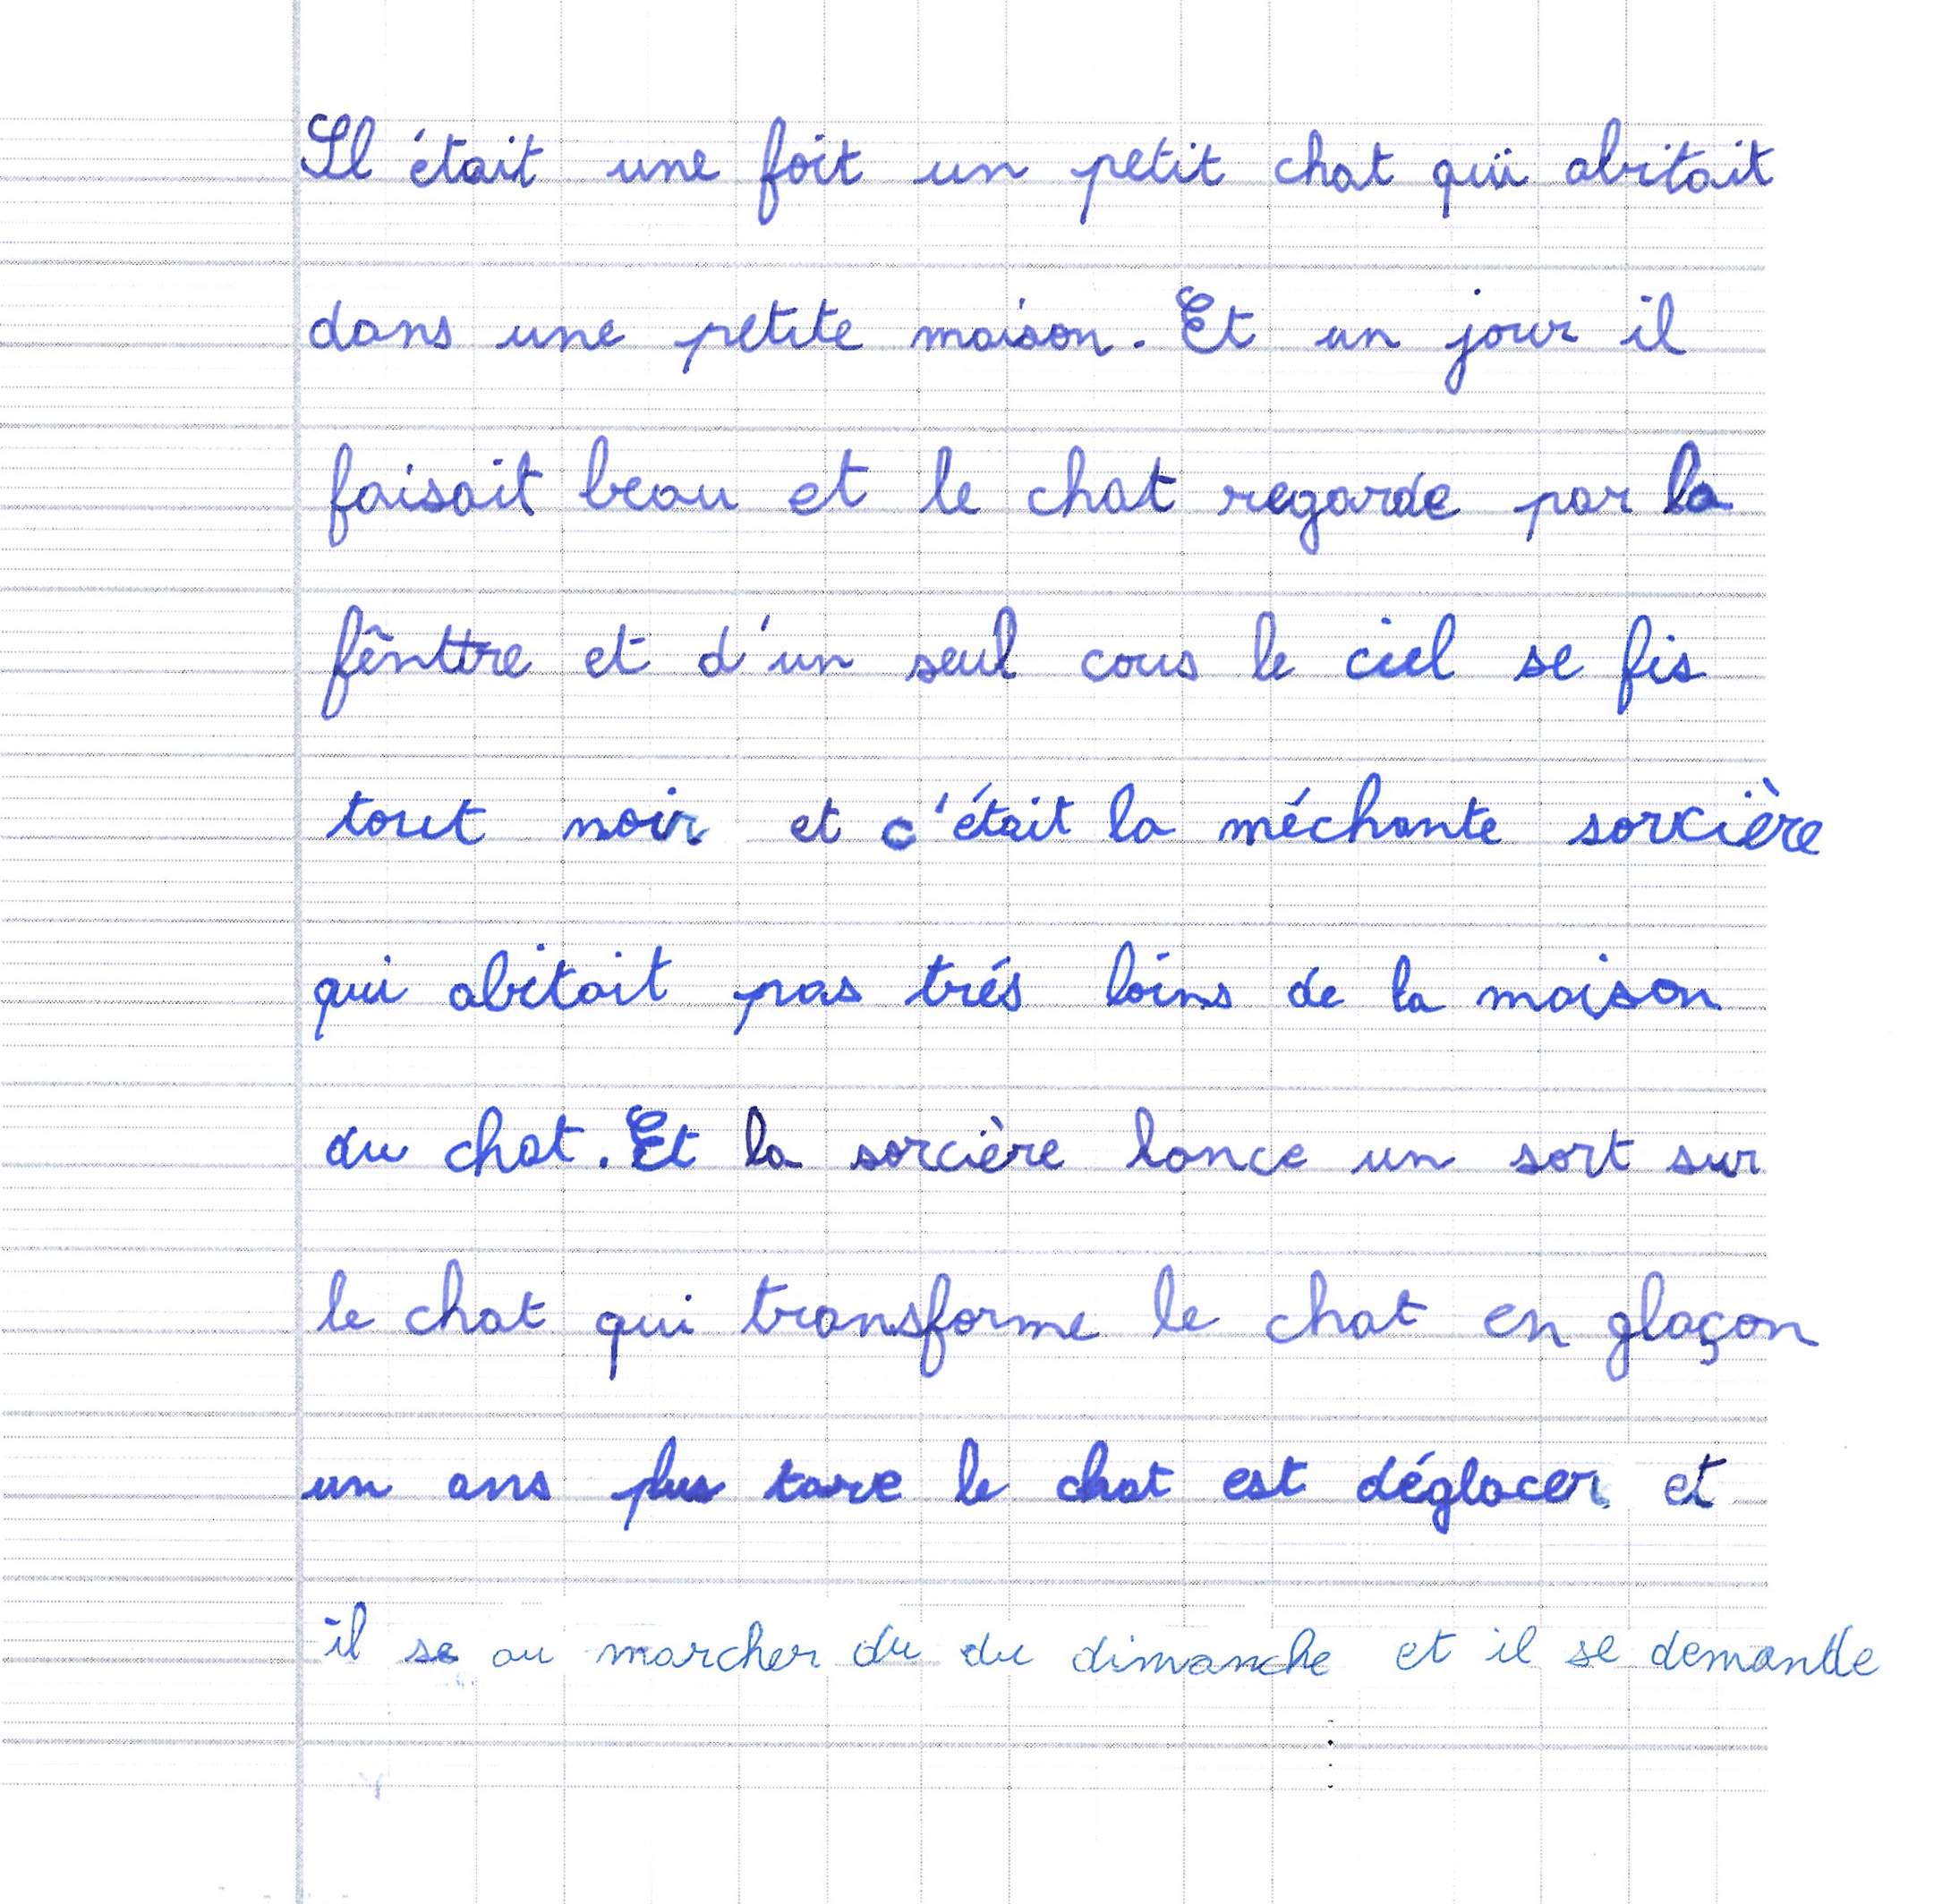 Il était une foit un petit chat qui abitait
dans une petite maison. Et un jour il
faisait beau et le chat regarde par la
fênttre et d'un seul cous le ciel se fis
tout noir et c'était la méchante sorcière
qui abitait pas trés loins de la maison
du chat. Et la sorcière lance un sort sur
le chat qui transforme le chat en glaçon
un ans plus tare le chat est déglacer et
il se au marcher du du dimanche et il se demande